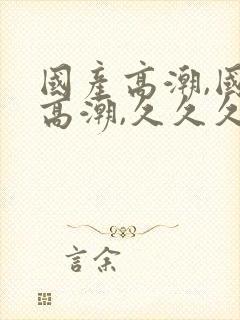 國產高潮,國
高潮,久久久
言余